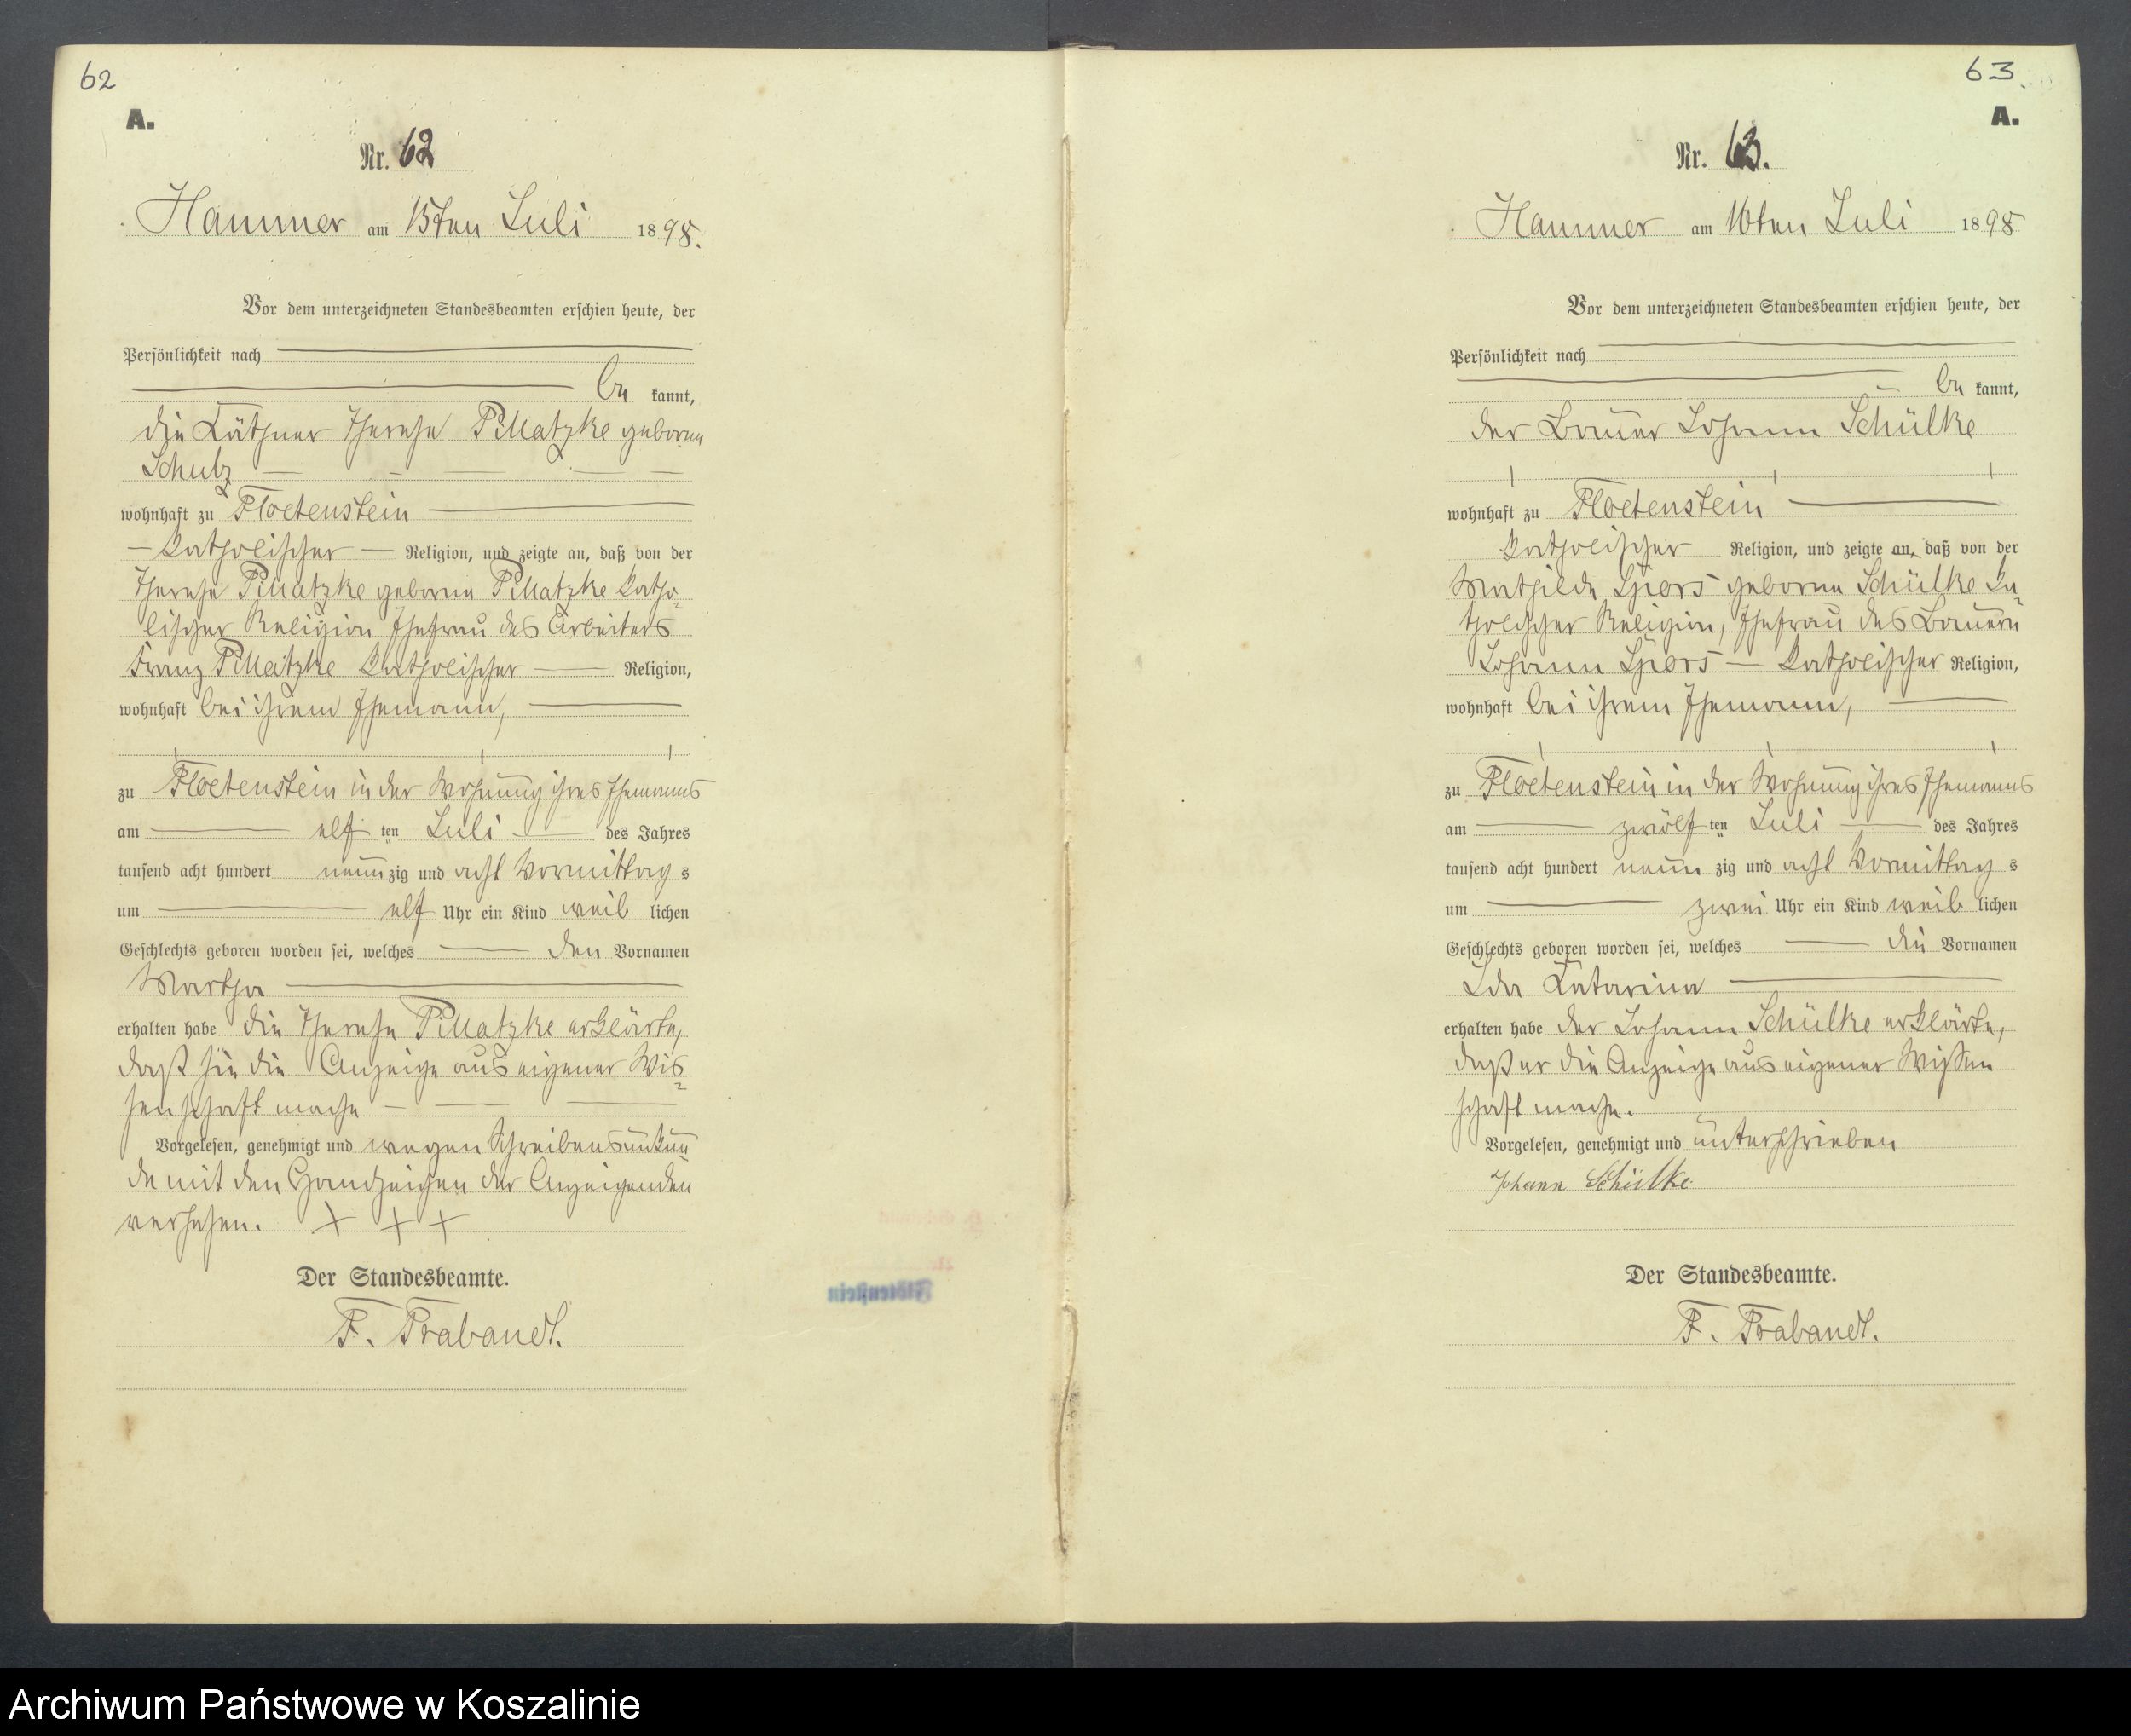 62
A.
Nr. 62
Hammer am 15ten Juli 1898.
Vor dem unterzeichneten Standesbeamten erschien heute, der
Persönlichkeit nach
be kannt,
die Käthner Therese Pillatzke geborene
Schulz
wohnhaft zu Floetenstein
katholischer Religion, und zeigte an, daß von der
Therese Pillatzke geborene Pillatzke katho-
lischer Religion Ehefrau des Arbeiters
Franz Pillatzke katholischer Religion,
wohnhaft bei ihrem Ehemann,
zu Floetenstein in der Wohnung ihres Ehemanns
am elf ten Juli des Jahres
tausend acht hundert neun zig und acht Vormittag s
um elf Uhr ein Kind weib lichen
Geschlechts geboren worden sei, welches den Vornamen
Martha
erhalten habe die Therese Pillatzke erklärte,
daß sie die Anzeige aus eigener Wis-
senschaft mache
Vorgelesen, genehmigt und wegen Schreibensunkun
de mit den Handzeichen der Anzeigenden
versehen. + + +
Der Standesbeamte.
F. Trabandt.
Flötenstein
63.
A.
Nr. 63.
Hammer am 16ten Juli 1898
Vor dem unterzeichneten Standesbeamten erschien heute, der
Persönlichkeit nach
be kannt,
der Bauer Johann Schülke
wohnhaft zu Floetenstein
katholischer Religion, und zeigte an, daß von der
Mathilde Spors geborene Schülke ka-
tholischer Religion, Ehefrau des Bauern
Johann Spors katholischer Religion,
wohnhaft bei ihrem Ehemann,
zu Floetenstein in der Wohnung ihres Ehemanns
am zwölf ten Juli des Jahres
tausend acht hundert neun zig und acht Vormittag s
um zwei Uhr ein Kind weib lichen
Geschlechts geboren worden sei, welches die Vornamen
Ida Katarina
erhalten habe der Johann Schülke erklärte,
daß er die Anzeige aus eigener Wissen
schaft mache.
Vorgelesen, genehmigt und unterschrieben
Johann Schülke
Der Standesbeamte.
F. Trabandt.
Archiwum Państwowe w Koszalinie